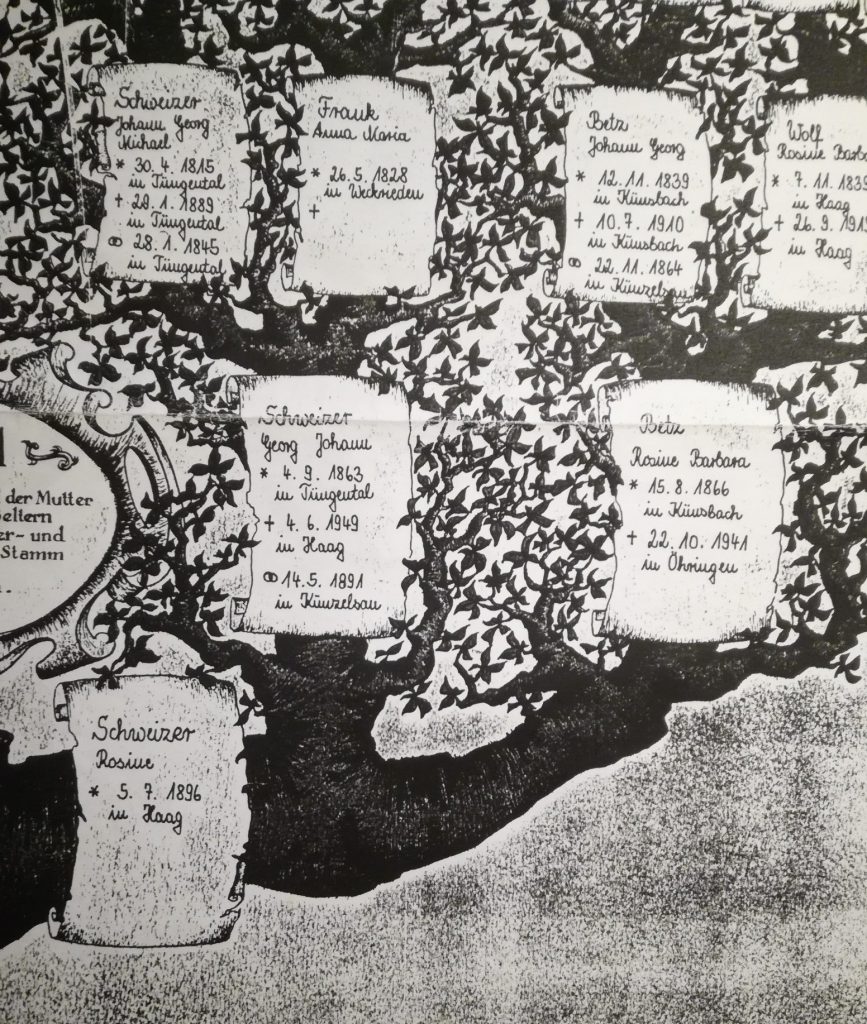 Schweizer
Johann Georg
Michael
* 30. 4. 1815
in Tüngental
+ 29. 1. 1889
in Tüngental
⚭ 28. 1. 1845
in Tüngental
Frank
Anna Maria
* 26. 5. 1828
in Weckrieden
+
Betz
Johann Georg
* 12. 11. 1839
in Künsbach
+ 10. 7. 1910
in Künsbach
⚭ 22. 11. 1864
in Künzelsau
Wolf
Rosine Barba
* 7. 11. 1839
in Haag
+ 26. 9. 1913
in Haag
Schweizer
Georg Johann
* 4. 9. 1863
in Tüngental
+ 4. 6. 1949
in Haag
⚭ 14. 5. 1891
in Künzelsau
Betz
Rosine Barbara
* 15. 8. 1866
in Künsbach
+ 22. 10. 1941
in Öhringen
der Mutter
eltern
er- und
Stamm
Schweizer
Rosine
* 5. 7. 1896
in Haag